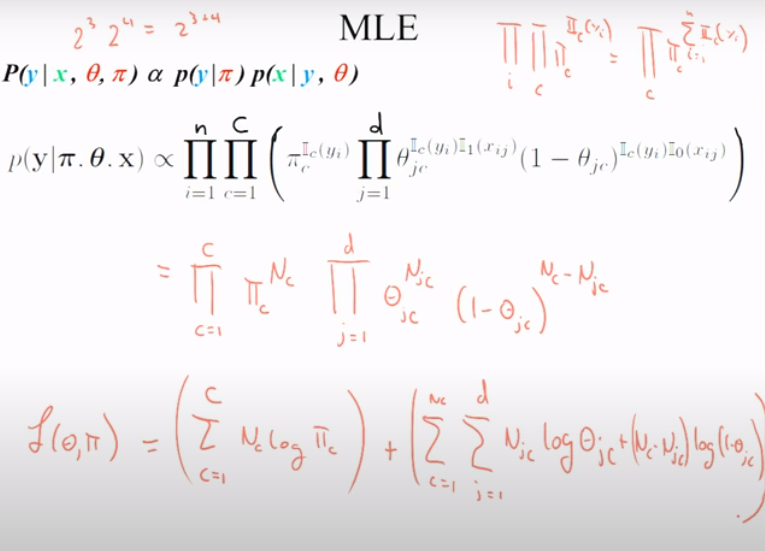 2³ 2⁴ = 2³⁺⁴
MLE
∏_i ∏_c π_c^{𝕀_c(y_i)} = ∏_c π_c^{∑_{i=1}^n 𝕀_c(y_i)}
P(y|x, θ, π) α p(y|π) p(x|y, θ)
p(y|π.θ.x) ∝ ∏_{i=1}^n ∏_{c=1}^C ( π_c^{𝕀_c(y_i)} ∏_{j=1}^d θ_{jc}^{𝕀_c(y_i)𝕀_1(x_{ij})} (1 − θ_{jc})^{𝕀_c(y_i)𝕀_0(x_{ij})} )
= ∏_{c=1}^C π_c^{N_c} ∏_{j=1}^d θ_{jc}^{N_{jc}} (1-θ_{jc})^{N_c - N_{jc}}
ℒ(θ,π) = ( ∑_{c=1}^C N_c log π_c ) + ( ∑_{c=1}^{N_c} ∑_{j=1}^d N_{jc} log θ_{jc} + (N_c - N_{jc}) log(1-θ_{jc}) )